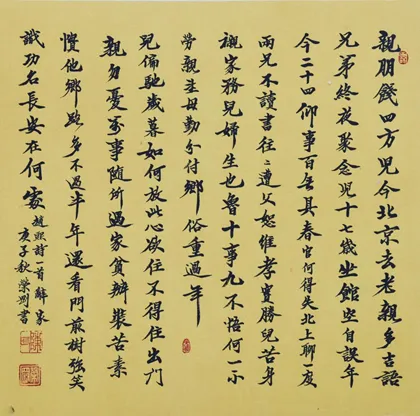 親朋餞四方兒今北京去老親多吉語
兄弟終夜聚念兒十七歲坐館自誤年
今二十四仰事百無具春官何得失北上聊一度
兩兄不讀書往往遭父怒維孝實勝兒苦身
襯家務兒婦生也魯十事九不悟何一示
勞親望母勤分付鄉俗重過年
兒偏馳歲暮如何放此心欲住不得住出門
親勿憂萬事隨所遇家貧辦裝苦素
慣他鄉路多不過半年還看門前樹強笑
識功名長安在何處
趙熙詩一首辭家
庚子秋榮書